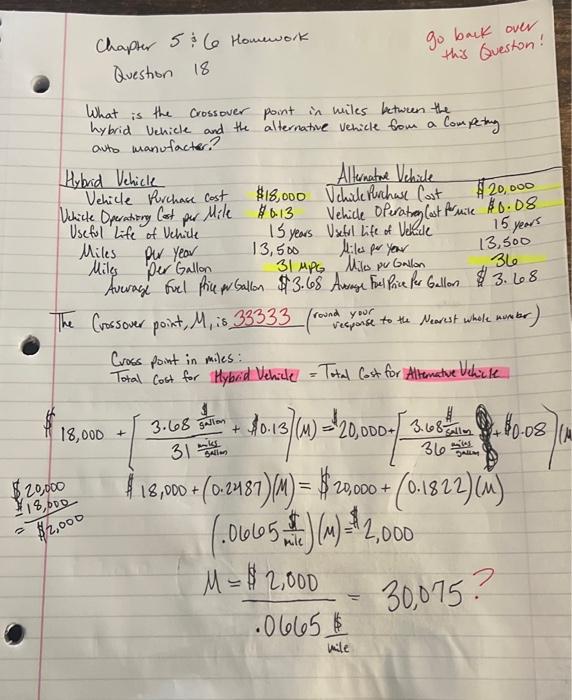 Chapter 5 & 6 Homework
go back over
this Question!
Question 18
What is the crossover point in miles between the
hybrid vehicle and the alternative vehicle from a Competing
auto manufacter?
Hybrid Vehicle Alternative Vehicle
Vehicle Purchase cost $18,000 Vehicle Purchase Cost $20,000
Vehicle Operating Cost per Mile $0.13 Vehicle Operating Cost Per mile $0.08
Useful Life of Vehicle 15 years Useful Life of Vehicle 15 years
Miles per year 13,500 Miles per year 13,500
Miles Per Gallon 31 MPG Miles per Gallon 36
Average Fuel Price per Gallon $3.68 Average Fuel Price Per Gallon $3.68
The Crossover point, M, is 33333 (round your response to the Nearest whole number)
Cross point in miles:
Total Cost for Hybrid Vehicle = Total Cost for Alternative Vehicle
$18,000 + [3.68 $/gallon / 31 miles/gallon + $0.13](M) = $20,000 + [3.68 $/gallon / 36 miles/gallon + $0.08](M
$18,000 + (0.2487)(M) = $20,000 + (0.1822)(M)
$20,000
$18,000
= $2,000
(.0665 $/mile)(M) = $2,000
M = $2,000 / .0665 $/mile = 30,075?